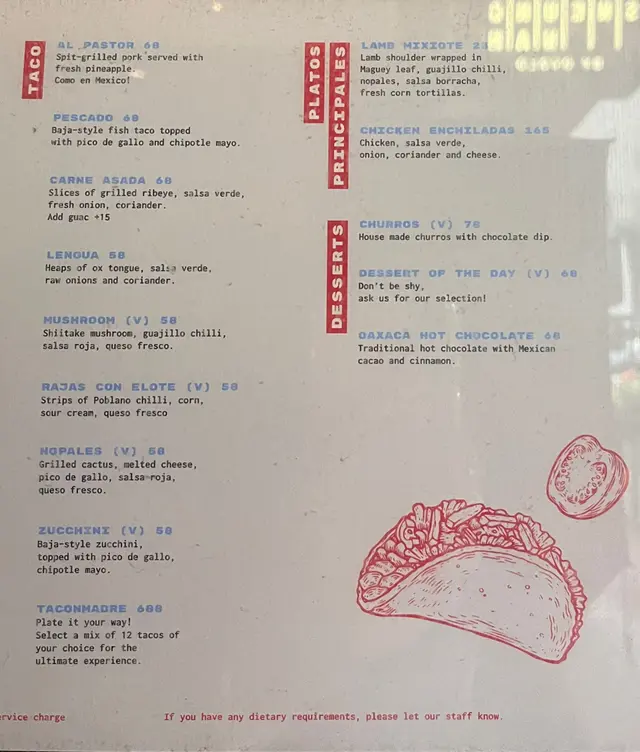 TACO
AL PASTOR 68
Spit-grilled pork served with
fresh pineapple.
Como en Mexico!
PESCADO 68
Baja-style fish taco topped
with pico de gallo and chipotle mayo.
CARNE ASADA 68
Slices of grilled ribeye, salsa verde,
fresh onion, coriander.
Add guac +15
LENGUA 58
Heaps of ox tongue, salsa verde,
raw onions and coriander.
MUSHROOM (V) 58
Shiitake mushroom, guajillo chilli,
salsa roja, queso fresco.
RAJAS CON ELOTE (V) 58
Strips of Poblano chilli, corn,
sour cream, queso fresco
NOPALES (V) 58
Grilled cactus, melted cheese,
pico de gallo, salsa roja,
queso fresco.
ZUCCHINI (V) 58
Baja-style zucchini,
topped with pico de gallo,
chipotle mayo.
TACONMADRE 688
Plate it your way!
Select a mix of 12 tacos of
your choice for the
ultimate experience.
PLATOS
PRINCIPALES
LAMB MIXIOTE
Lamb shoulder wrapped in
Maguey leaf, guajillo chilli,
nopales, salsa borracha,
fresh corn tortillas.
CHICKEN ENCHILADAS 165
Chicken, salsa verde,
onion, coriander and cheese.
DESSERTS
CHURROS (V) 78
House made churros with chocolate dip.
DESSERT OF THE DAY (V) 68
Don't be shy,
ask us for our selection!
OAXACA HOT CHOCOLATE 68
Traditional hot chocolate with Mexican
cacao and cinnamon.
ervice charge
If you have any dietary requirements, please let our staff know.